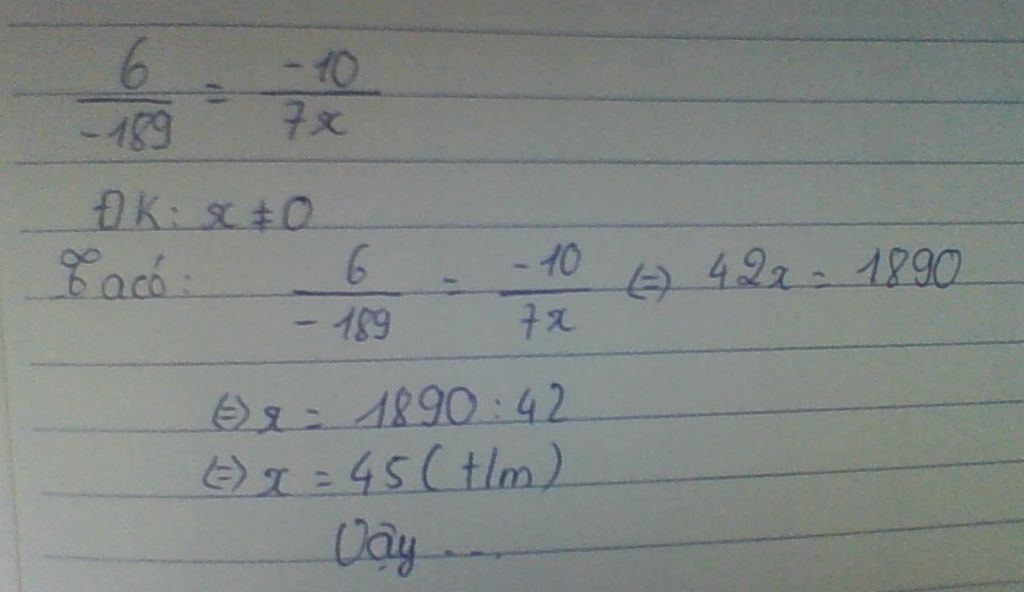 6/-189 = -10/7x
ĐK: x ≠ 0
Ta có: 6/-189 = -10/7x (=) 42x = 1890
(=) x = 1890 : 42
(=) x = 45 (t/m)
Vậy ...